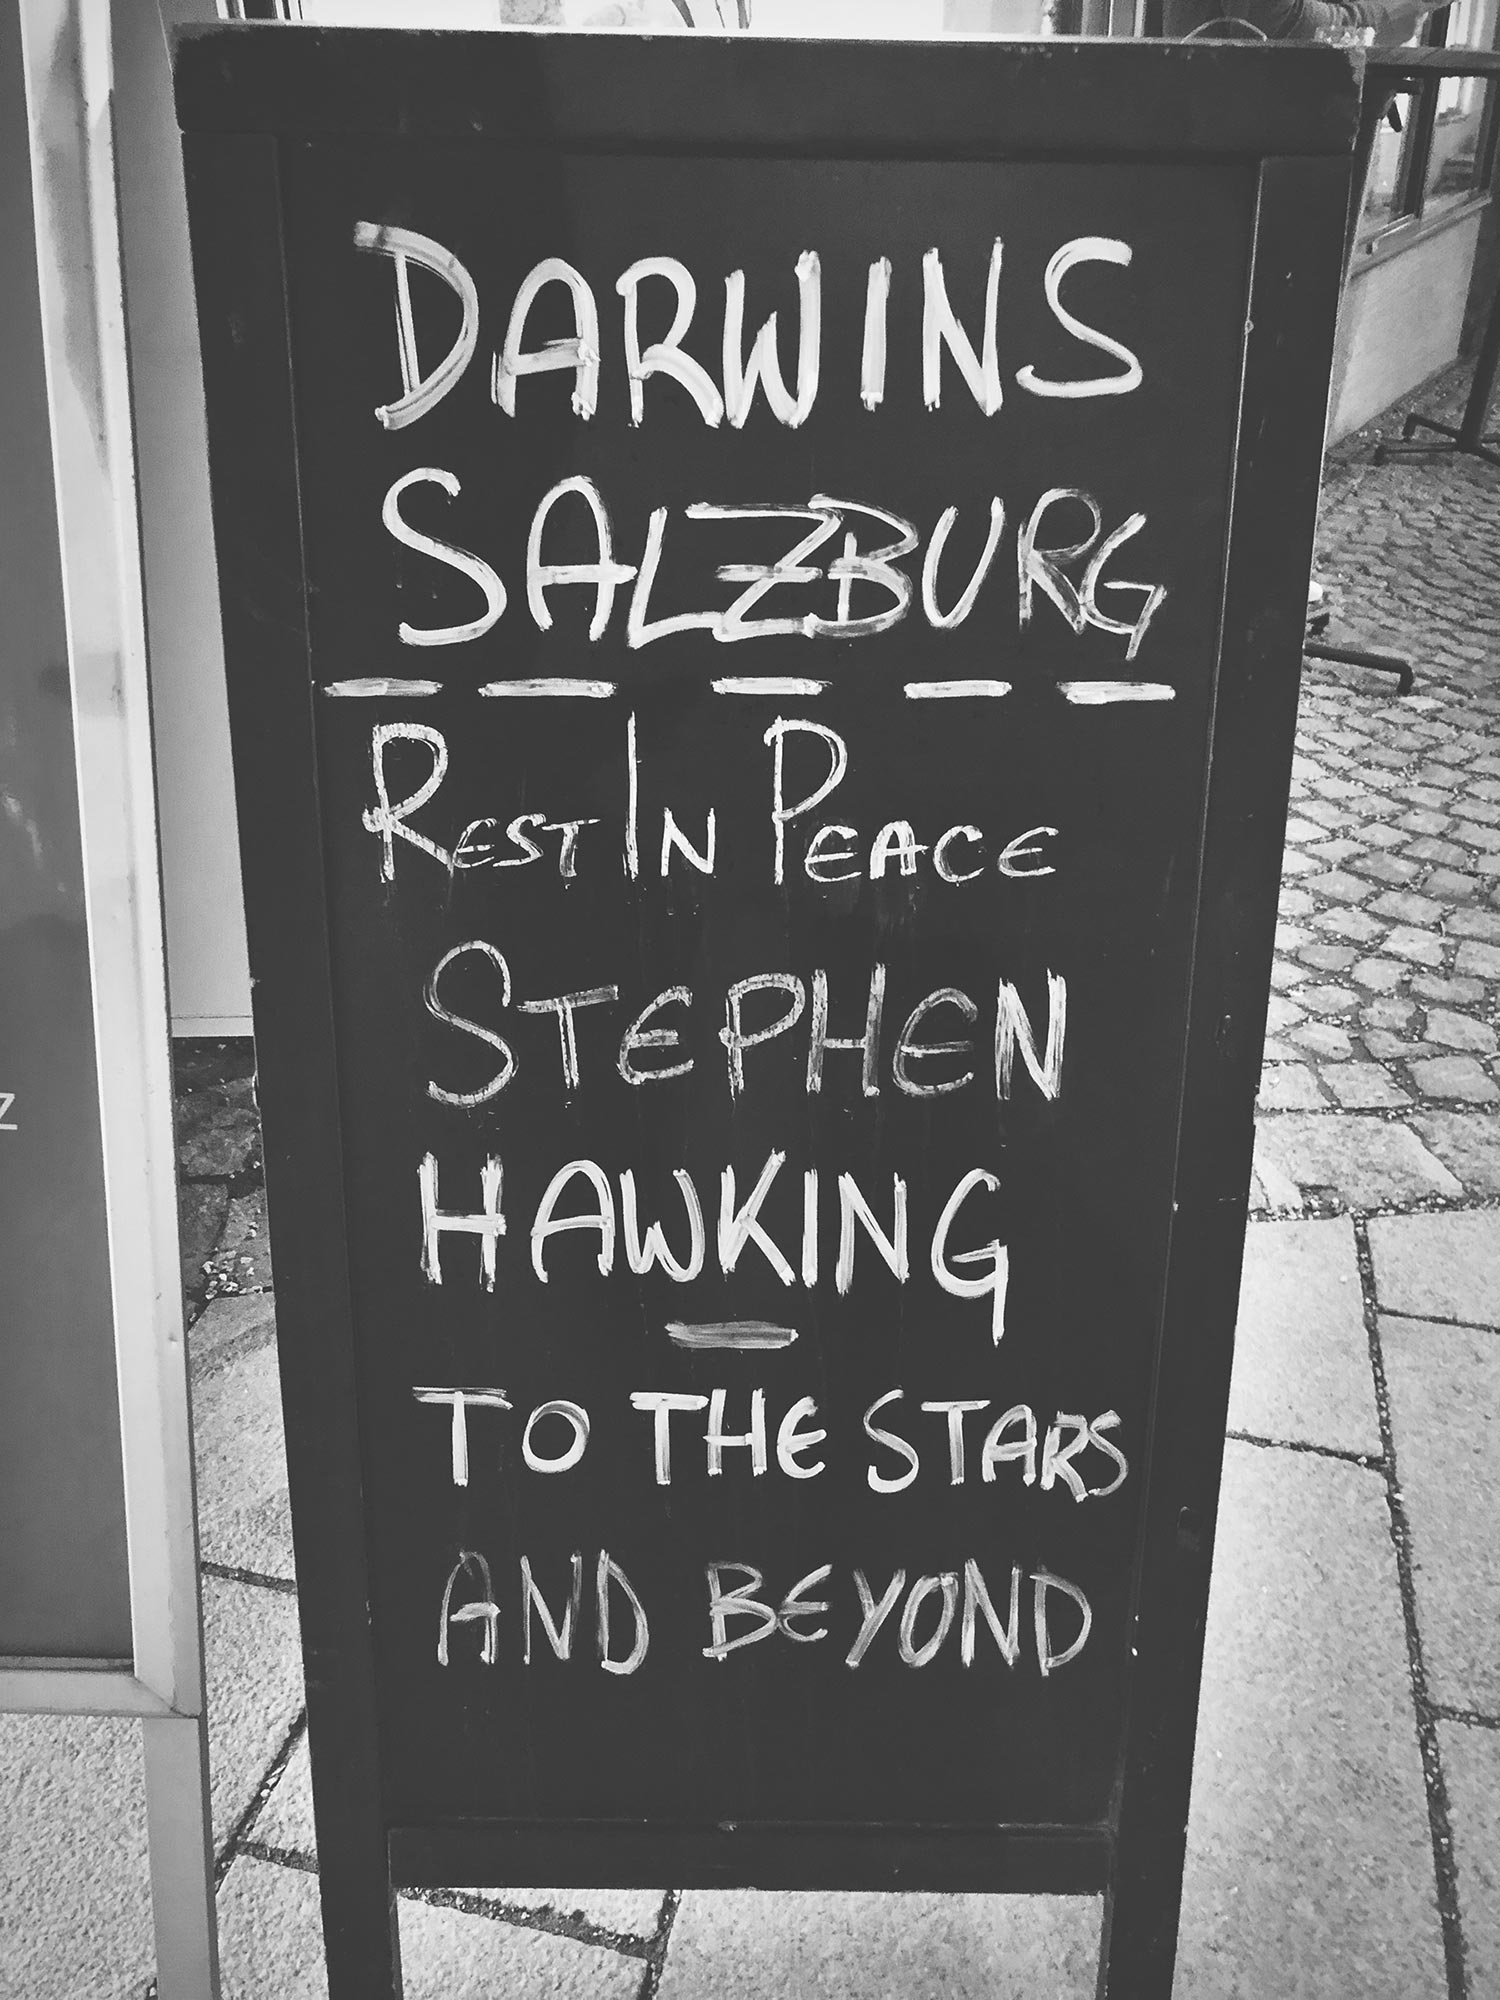 DARWINS
SALZBURG
— — — — —
REST IN PEACE
STEPHEN
HAWKING
—
TO THE STARS
AND BEYOND
Z